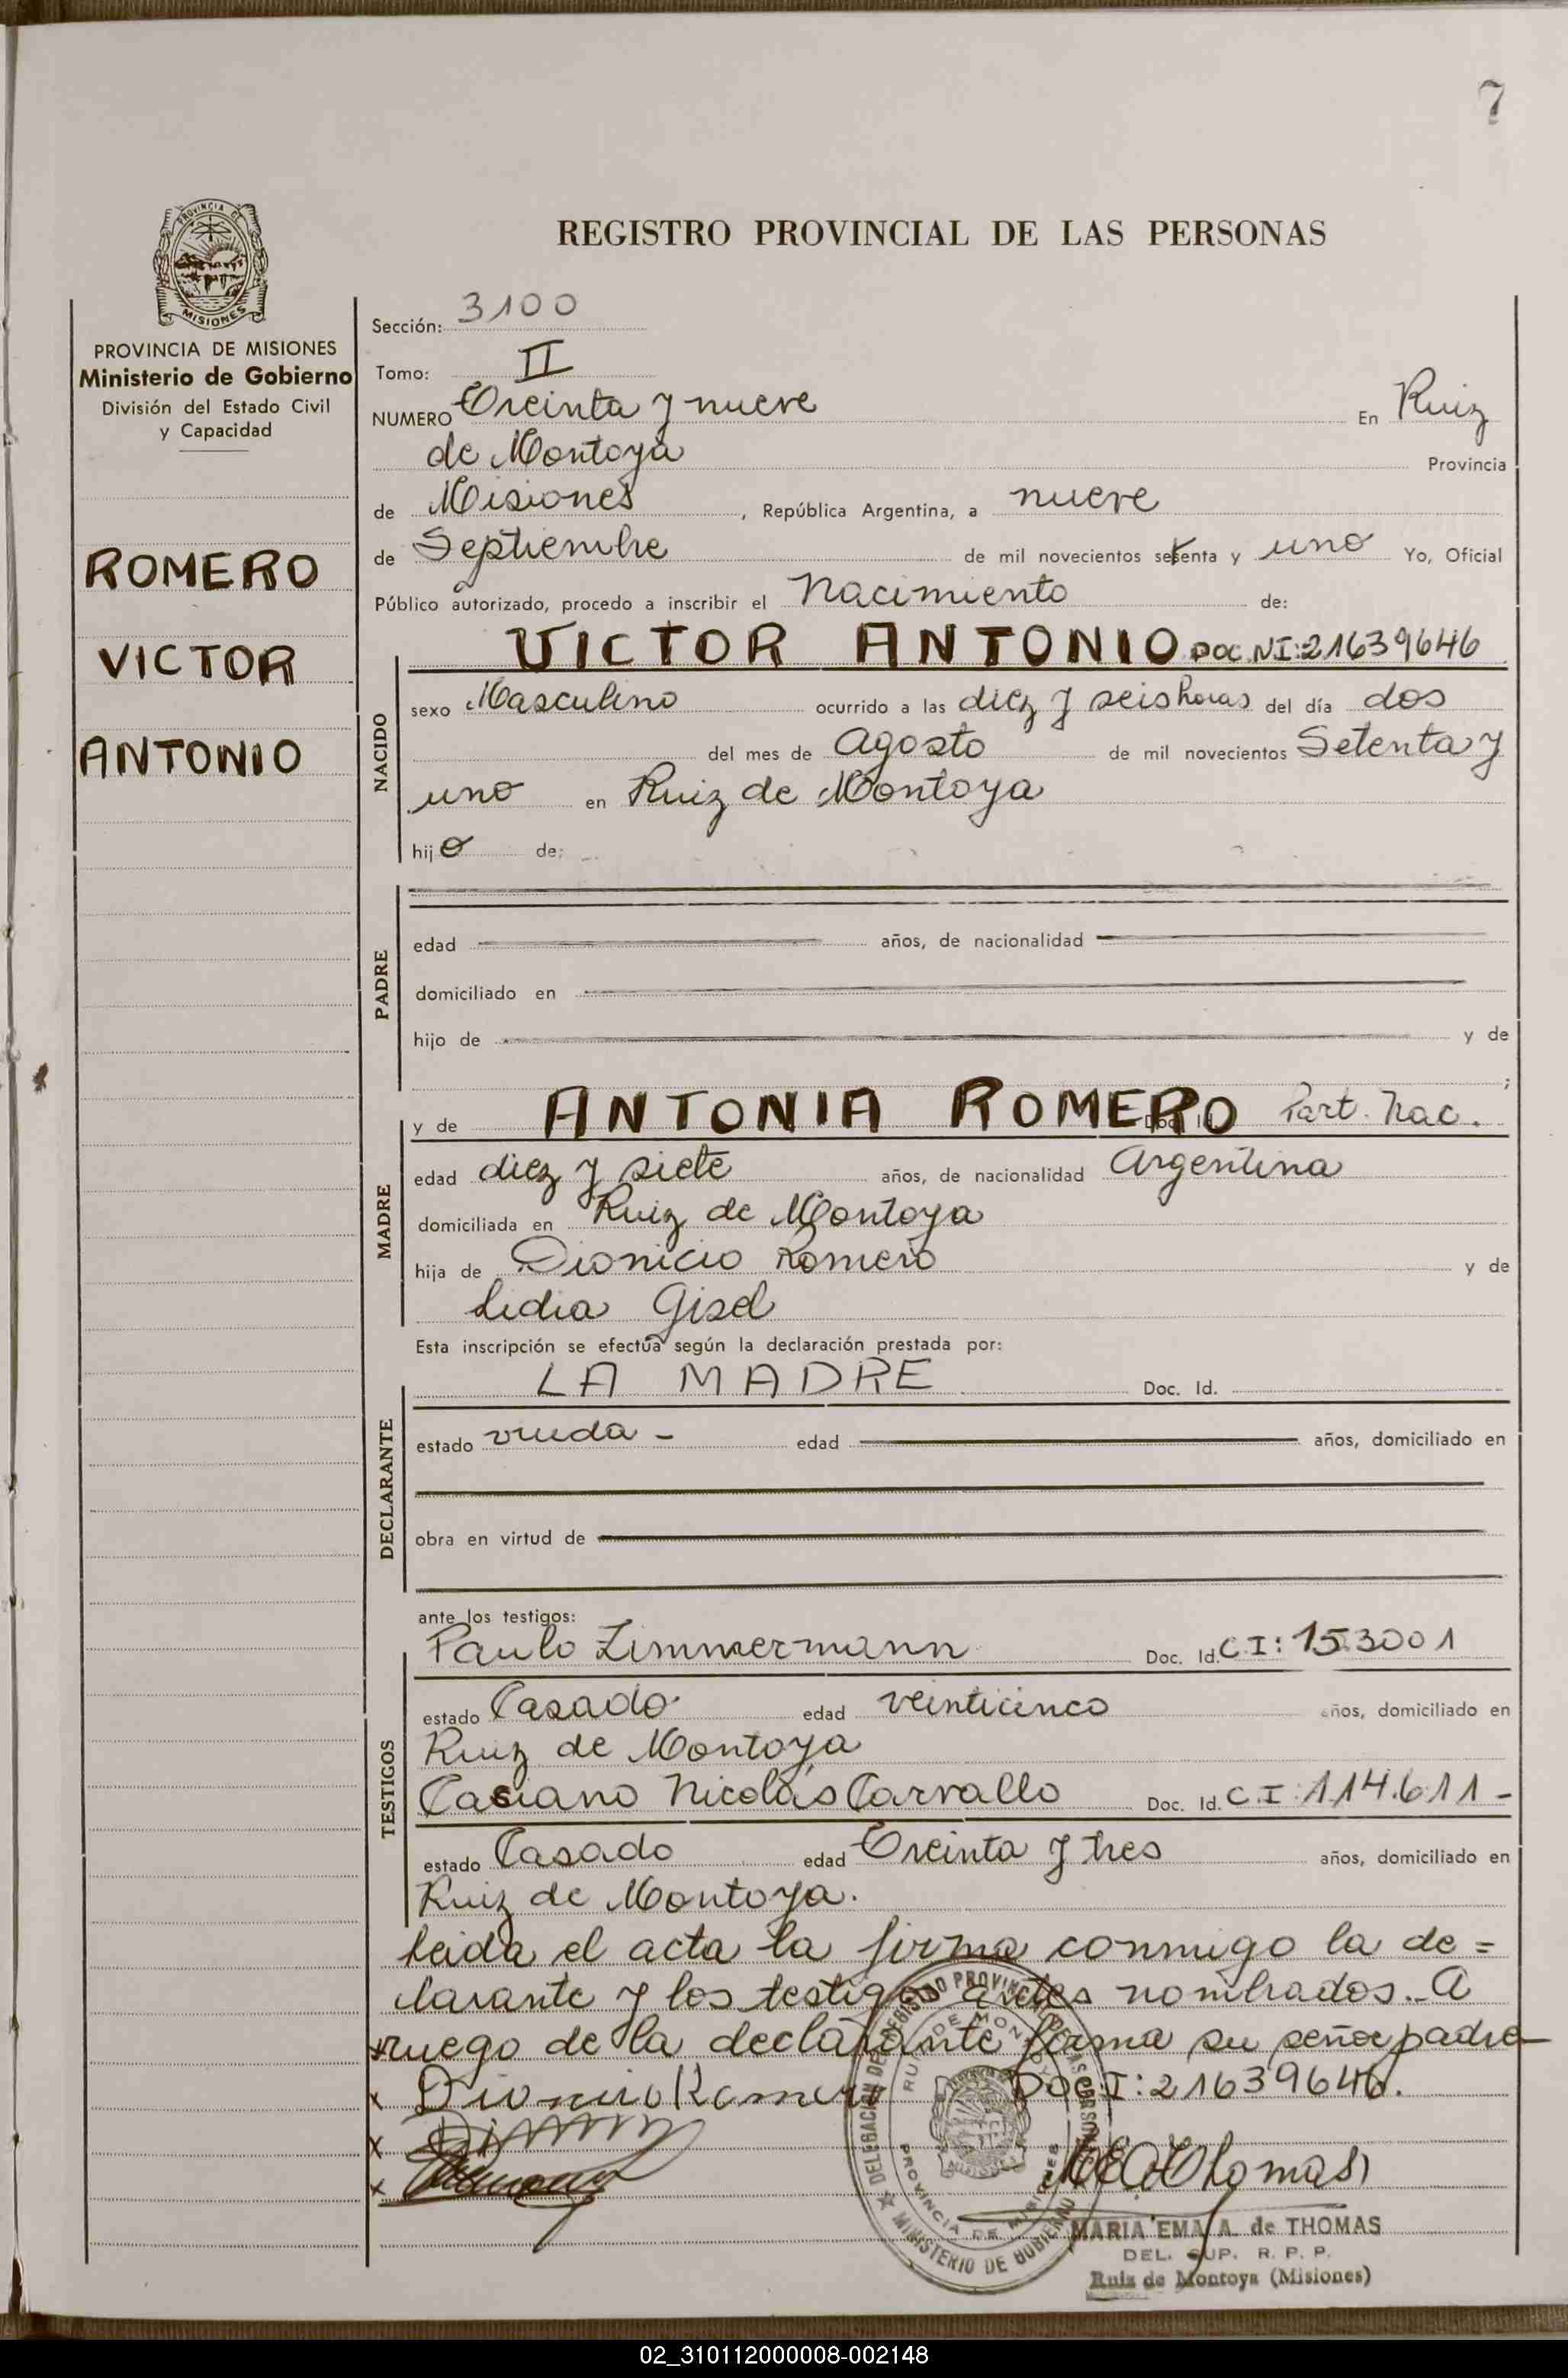 7
PROVINCIA DE
MISIONES
PROVINCIA DE MISIONES
Ministerio de Gobierno
División del Estado Civil
y Capacidad
ROMERO
VICTOR
ANTONIO
REGISTRO PROVINCIAL DE LAS PERSONAS
Sección: 3100
Tomo: II
NUMERO Treinta y nueve En Ruiz
de Montoya Provincia
de Misiones, República Argentina, a nueve
de Septiembre de mil novecientos setenta y uno Yo, Oficial
Público autorizado, procedo a inscribir el Nacimiento de:
VICTOR ANTONIO DOC.NI:21639646
NACIDO
sexo Masculino ocurrido a las diez y seis horas del día dos
del mes de Agosto de mil novecientos Setenta y
uno en Ruiz de Montoya
hijo de:
PADRE
edad años, de nacionalidad
domiciliado en
hijo de y de
;
y de ANTONIA ROMERO Doc. Id. Part. Nac.
MADRE
edad diez y siete años, de nacionalidad Argentina
domiciliada en Ruiz de Montoya
hija de Dionicio Romero y de
Lidia Gisel
Esta inscripción se efectúa según la declaración prestada por:
LA MADRE Doc. Id.
DECLARANTE
estado viuda - edad años, domiciliado en
obra en virtud de
ante los testigos:
Paulo Zimmermann Doc. Id. C.I: 153001
TESTIGOS
estado Casado edad veinticinco años, domiciliado en
Ruiz de Montoya
Casiano Nicolás Carvallo Doc. Id. C.I: 114.611-
estado Casado edad Treinta y tres años, domiciliado en
Ruiz de Montoya.
Leida el acta la firma conmigo la de=
clarante y los testigos antes nombrados. A
ruego de la declarante firma su señor padre
x Dionicio Romero DOC.I: 21639646.
x
x
DELEGACIÓN DEL REGISTRO PROVINCIAL DE LAS PERSONAS
RUIZ DE MONTOYA
PROVINCIA DE MISIONES
MINISTERIO DE GOBIERNO
MARIA EMA A. de THOMAS
DEL. SUP. R. P. P.
Ruiz de Montoya (Misiones)
02_310112000008-002148